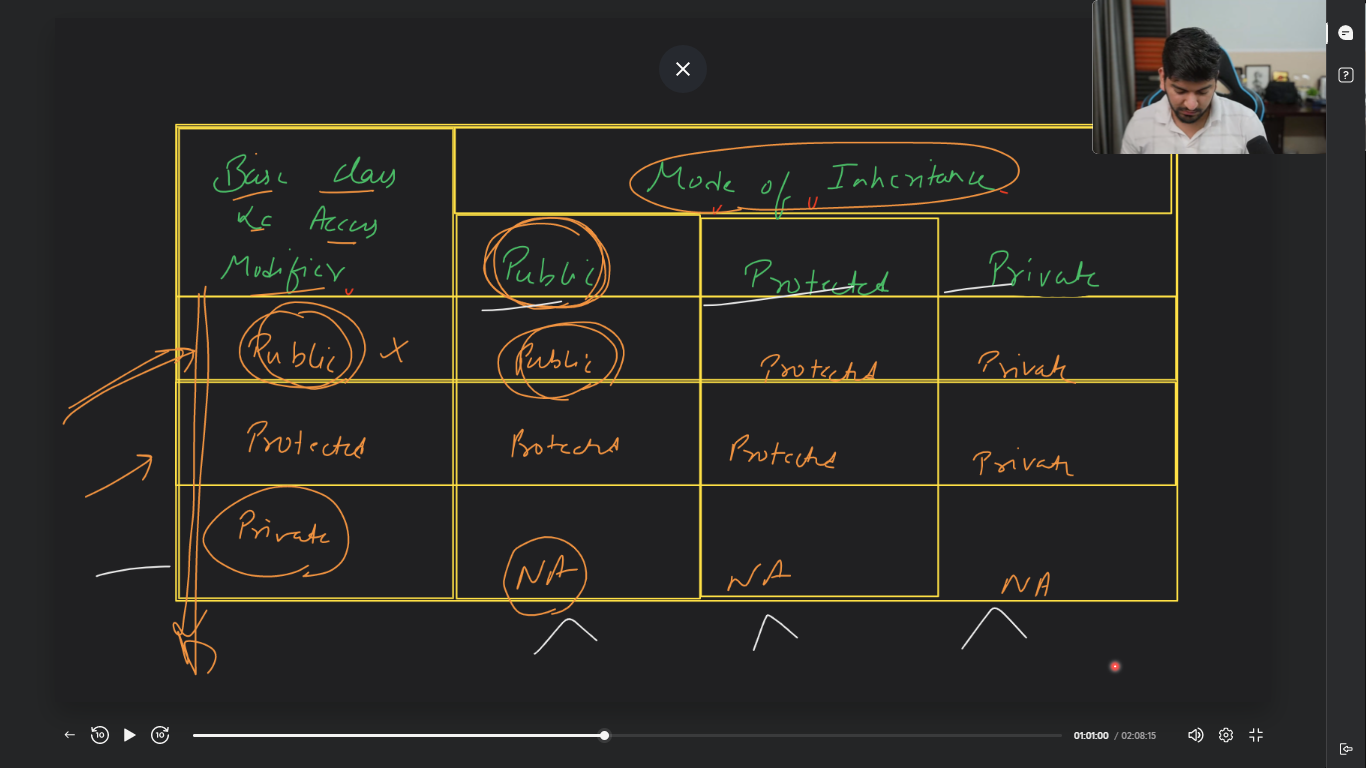 Base class
Ke Access
Modifier
Mode of Inheritance
Public Protected Private
Public X Public Protected Private
Protected Protected Protected Private
Private NA NA NA
10 10 01:01:00 / 02:08:15